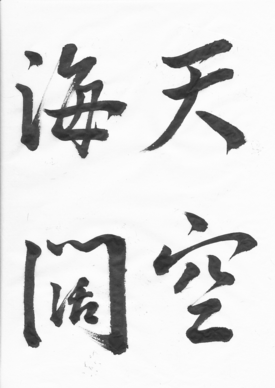 天空
海阔